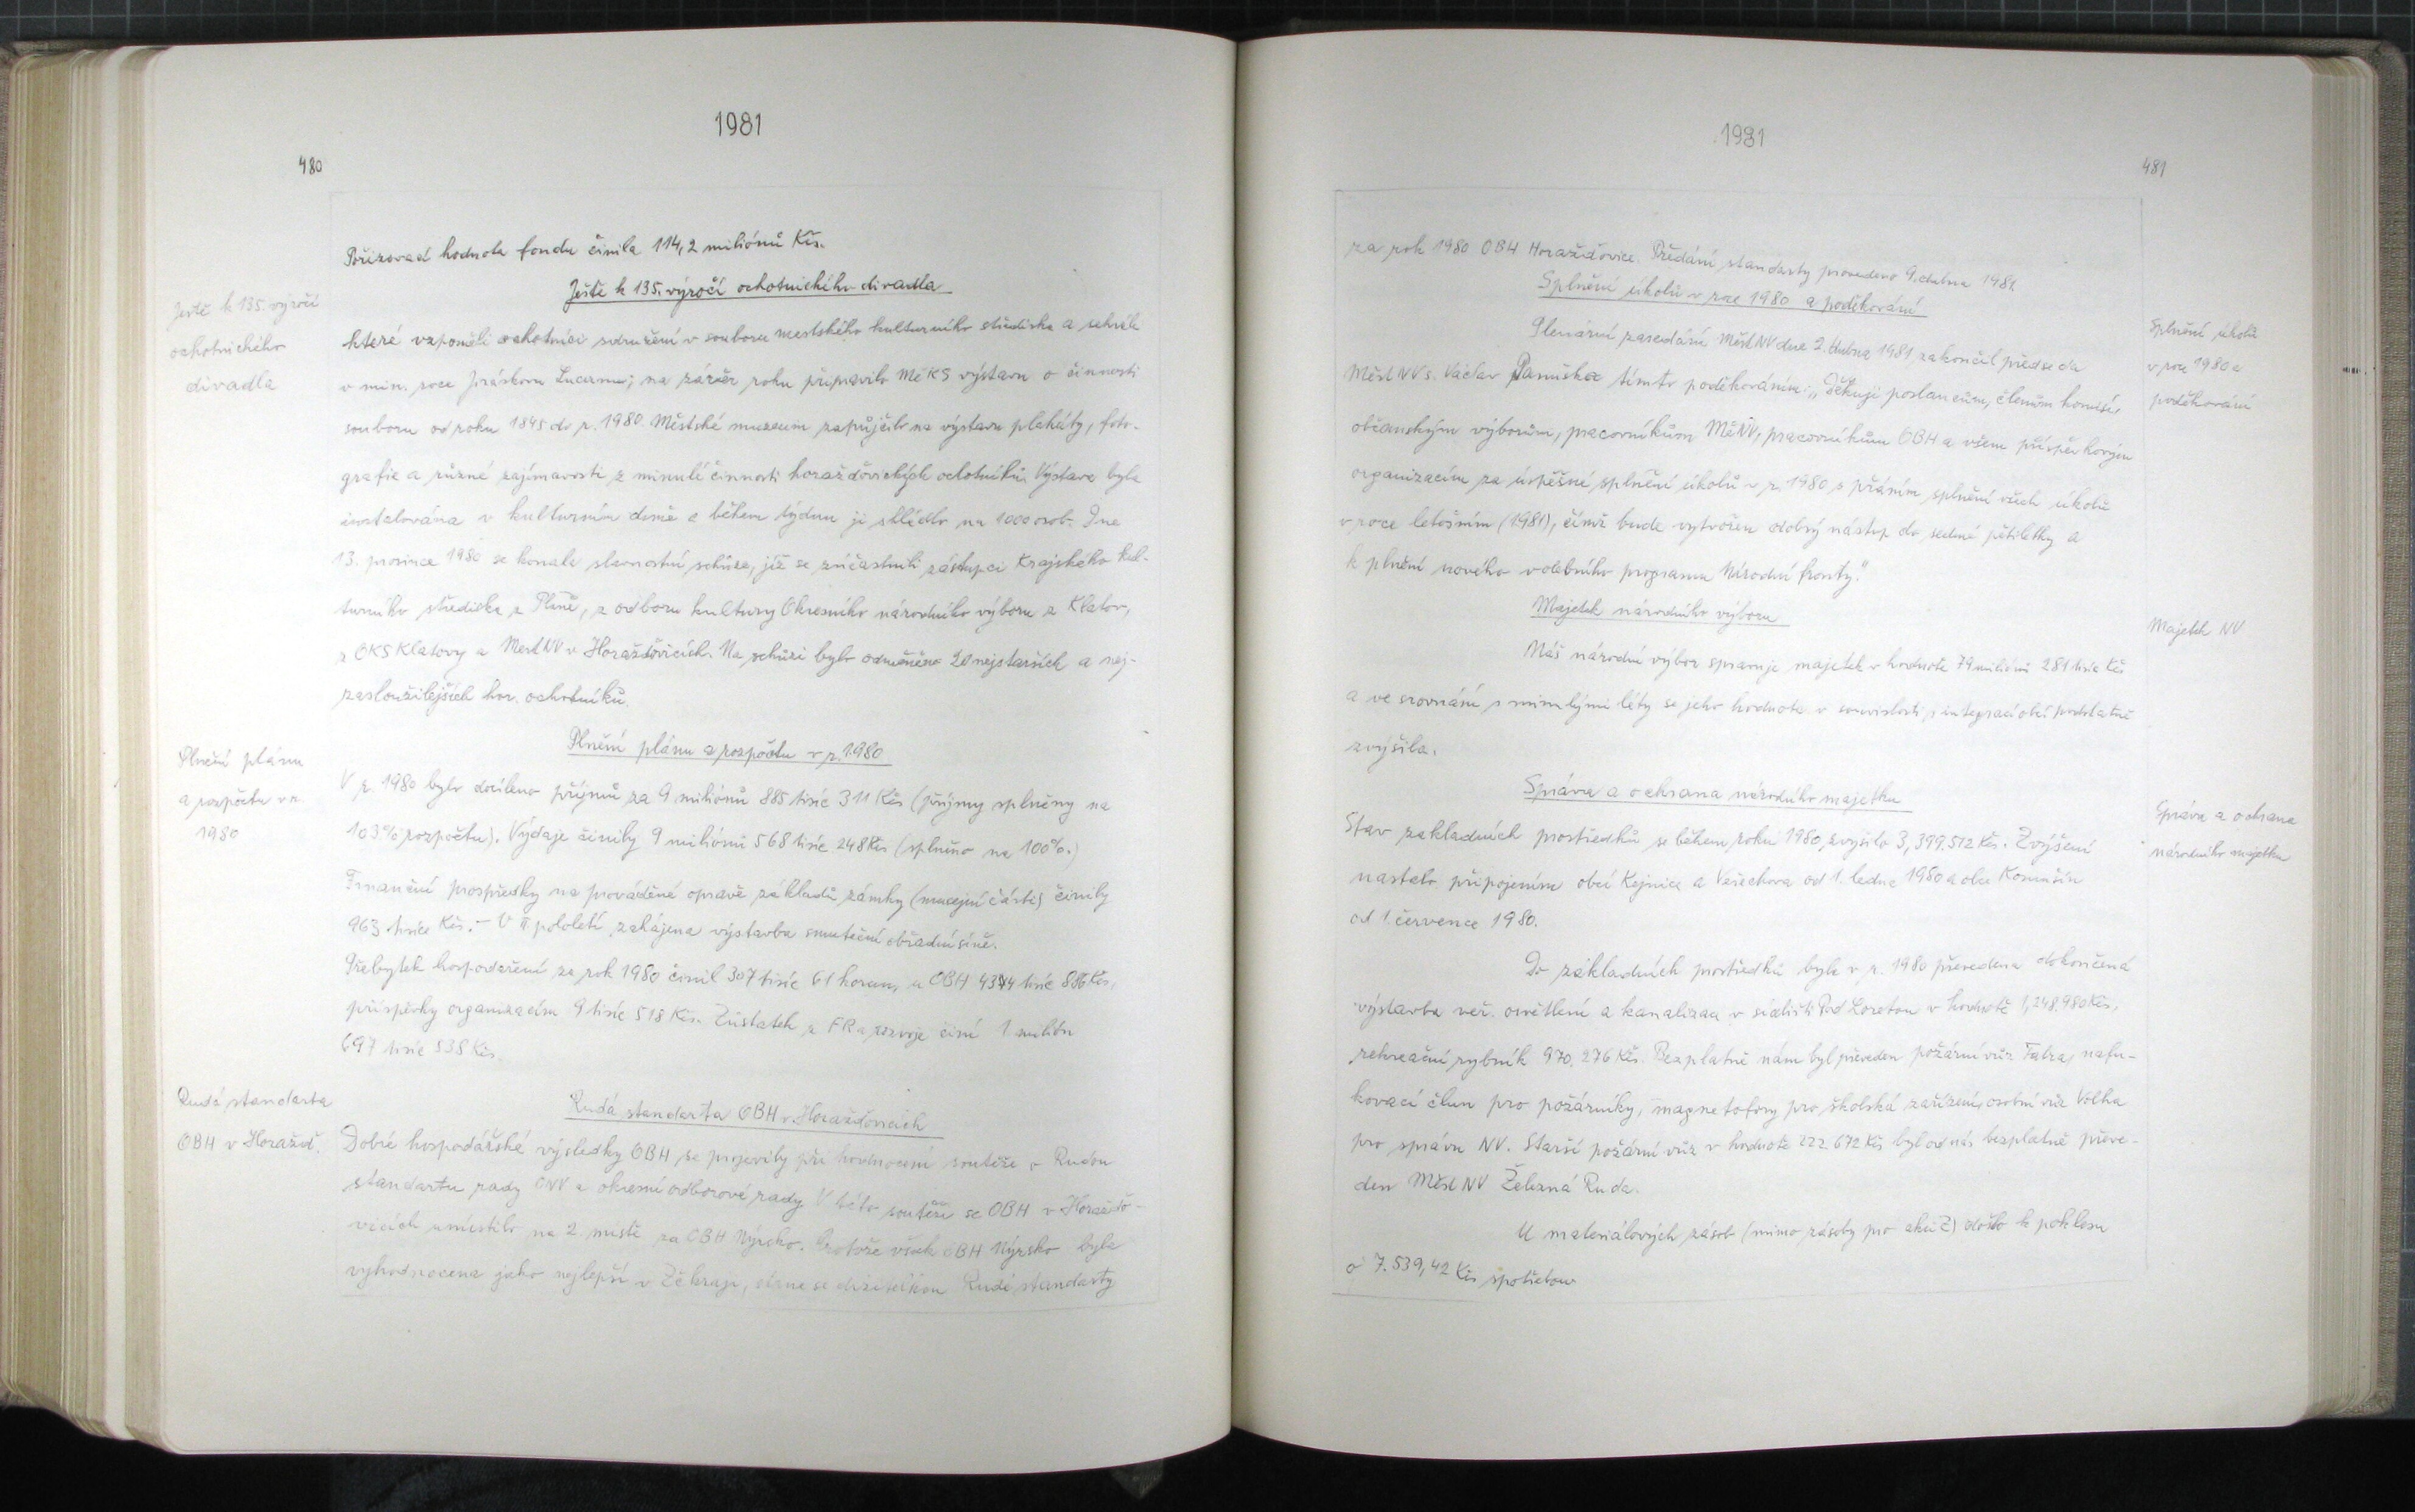 1981
480
Pořizovací hodnota fondu činila 114,2 miliónů Kčs.
Ještě k 135. výročí ochotnického divadla
Ještě k 135. výročí
ochotnického
divadla
které vzpoměli ochotníci sdružení v souboru městského kulturního střediska a sehráli
v min. roce Jiráskovu Lucernu; na závěr roku připravilo MěKS výstavu o činnosti
souboru od roku 1845 do r. 1980. Městské muzeum zapůjčilo na výstavu plakáty, foto-
grafie a různé zajímavosti z minulé činnosti horažďovických ochotníků. Výstava byla
instalována v kulturním domě a během týdnu ji shlédlo na 1000 osob. Dne
13. prosince 1980 se konala slavnostní schůze, jíž se zúčastnili zástupci Krajského kul-
turního střediska z Plzně, z odboru kultury Okresního národního výboru z Klatov,
z OKS Klatovy a MěstNV v Horažďovicích. Na schůzi bylo odměněno 20 nejstarších a nej-
zasloužilejších hor. ochotníků.
Plnění plánu a rozpočtu v r. 1980
Plnění plánu
a rozpočtu v r.
1980
V r. 1980 bylo docíleno příjmů za 9 miliónů 885 tisíc 311 Kčs (příjmy splněny na
103% rozpočtu). Výdaje činily 9 miliónů 568 tisíc 248 Kčs (splněno na 100%.)
Finanční prospředky na prováděné opravě základů zámku (muzejní části) činily
963 tisíce Kčs. – V II. pololetí zahájena výstavba smuteční obřadní síně.
Přebytek hospodaření za rok 1980 činil 307 tisíc 61 korun, u OBH 4374 tisíc 886 Kčs,
příspěvky organizacím 9 tisíc 518 Kčs. Zůstatek z FR a rezvoje činí 1 milión
697 tisíc 838 Kčs.
Rudá standarta OBH v Horažďovicích
Rudá standarta
OBH v Horažď.
Dobré hospodářské výsledky OBH se projevily při hodnocení soutěže o Rudou
standartu rady ONV a okresní odborové rady. V této soutěži se OBH v Horažďo-
vicích umístilo na 2. místě za OBH Nýrsko. Protože však OBH Nýrsko byla
vyhodnocena jako nejlepší v Zč kraji, stane se držitelkou Rudé standarty
1981
481
za rok 1980 OBH Horažďovice. Předání standarty provedeno 9. dubna 1981.
Splnění úkolů v roce 1980 a poděkování
Splnění úkolů
v roce 1980 a
poděkování
Plenární zasedání MěstNV dne 2. dubna 1981 zakončil předseda
MěstNV s. Václav Pamuška tímto poděkováním: „Děkuji poslancům, členům komisí,
občanským výborům, pracovníkům MěNV, pracovníkům OBH a všem příspěvkovým
organizacím za úspěšné splnění úkolů v r. 1980 s přáním splnění všech úkolů
v roce letošním (1981), čímž bude vytvořen dobrý nástup do sedmé pětiletky a
k plnění nového volebního programu Národní fronty."
Majetek národního výboru
Majetek NV
Náš národní výbor spravuje majetek v hodnotě 79 miliónů 281 tisíc Kčs
a ve srovnání s minulými léty se jeho hodnota v souvislosti s integrací obcí podstatně
zvýšila.
Správa a ochrana národního majetku
Správa a ochrana
národního majetku
Stav zakladních prostředků se během roku 1980 zvýšilo 3,399.512 Kčs. Zvýšení
nastalo připojením obcí Kejnice a Veřechova od 1. ledna 1980 a obce Komušín
od 1. července 1980.
Do základních prostředků byla v r. 1980 převedena dokončená
výstavba veř. osvětlení a kanalizací v sídlišti Pod Loretou v hodnotě 1,248.980 Kčs,
rekreační rybník 970.276 Kčs. Bezplatně nám byl převeden požární vůz Tatra, nafu-
kovací člun pro požárníky, magnetofony pro školská zařízení, osobní vůz Volha
pro správu NV. Starší požární vůz v hodnotě 222.672 Kčs byl od nás bezplatně převe-
den MěstNV Železná Ruda.
U materiálových zásob (mimo zásoby pro akci Z) došlo k poklesu
o 7.539,42 Kčs spotřebou